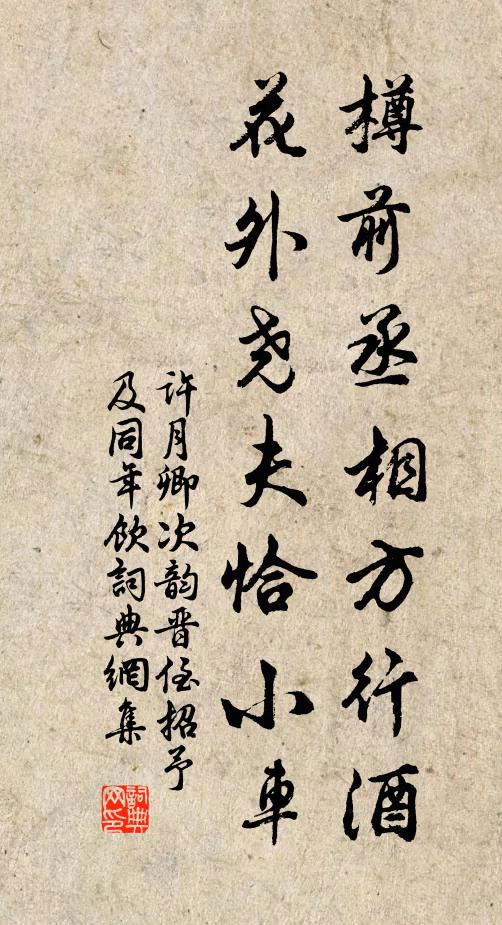 樽前丞相方行酒
花外尧夫恰小車
许月卿次韵晋侄招予
及同年飲詞典網集
詞典网印